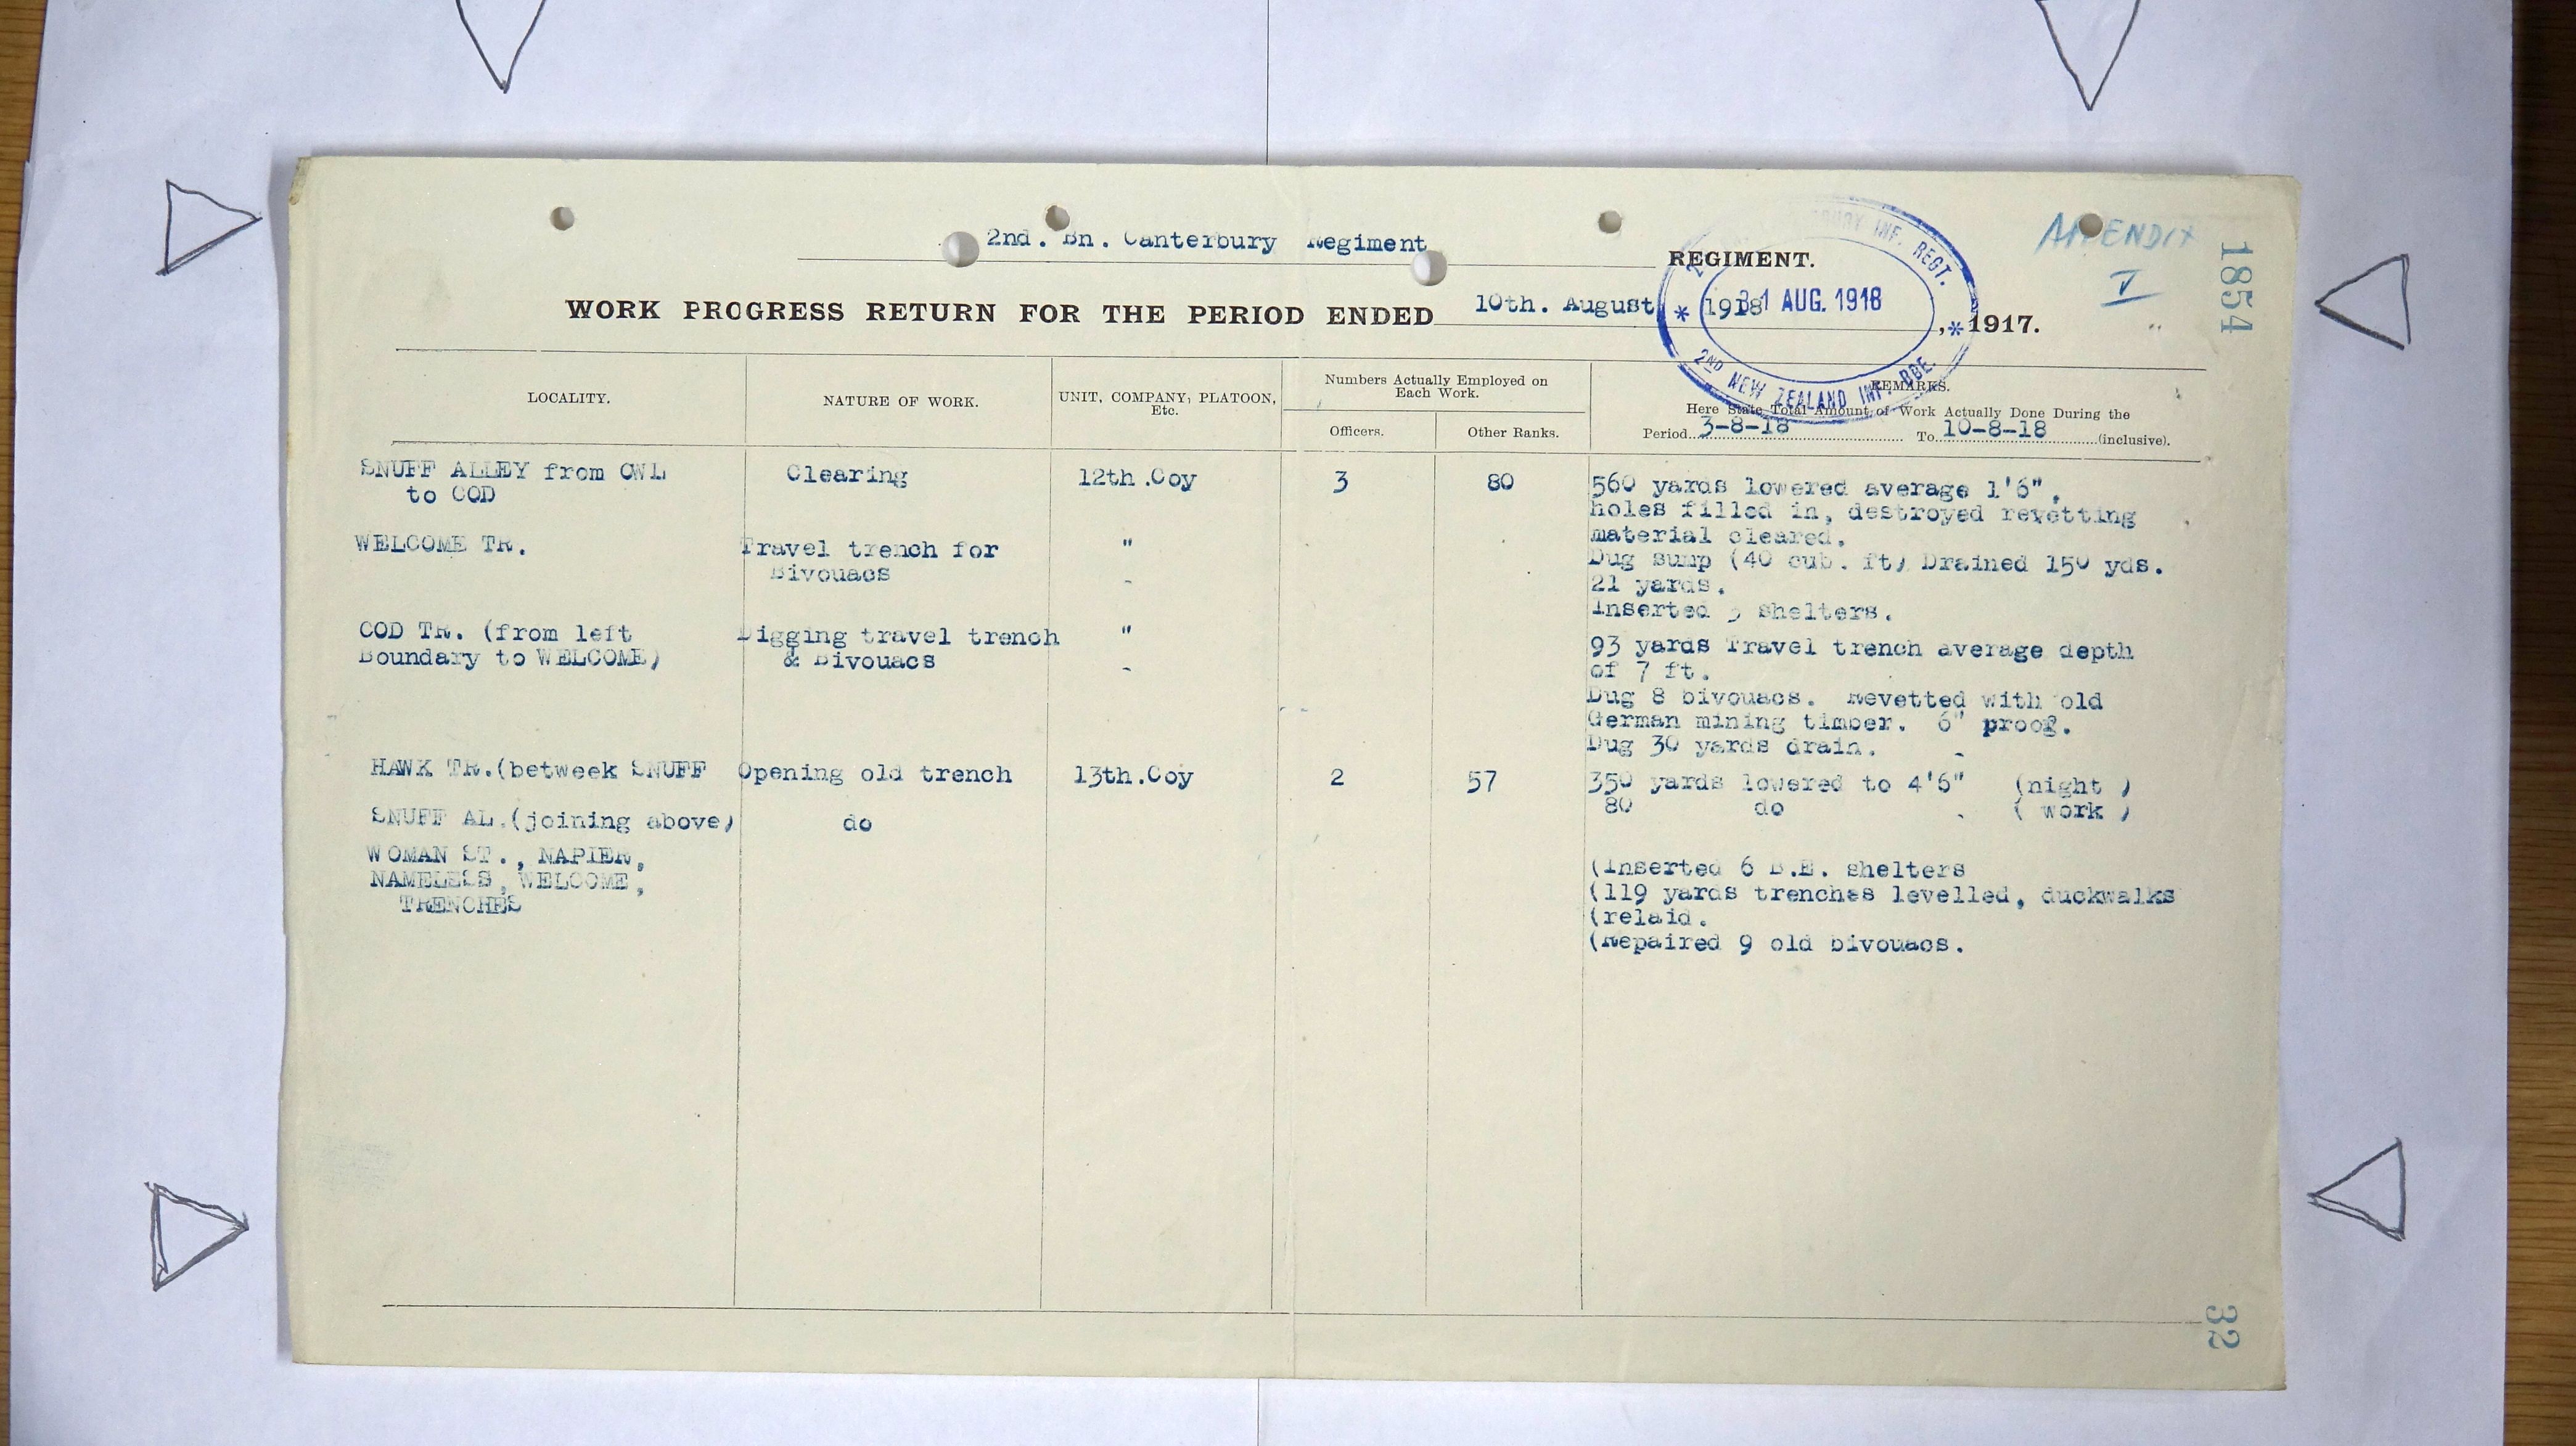 2nd. Bn. Canterbury Regiment REGIMENT.
APPENDIX
V
1854
WORK PROGRESS RETURN FOR THE PERIOD ENDED 10th. August 1918, 1917.
INF. REGT.
31 AUG. 1918
2ND NEW ZEALAND INF. BDE.
LOCALITY. NATURE OF WORK. UNIT, COMPANY, PLATOON, Etc. Numbers Actually Employed on Each Work. Officers. Other Ranks. REMARKS.
Here State Total Amount of Work Actually Done During the
Period 3-8-18 To 10-8-18 (inclusive).
SNUFF ALLEY from OWL Clearing 12th.Coy 3 80 560 yards lowered average 1'6",
to COD holes filled in, destroyed revetting
material cleared.
WELCOME TR. Travel trench for " Dug sump (40 cub. ft) Drained 150 yds.
Bivouacs - 21 yards.
Inserted shelters.
COD TR. (from left Digging travel trench " 93 yards Travel trench average depth
Boundary to WELCOME) & Bivouacs - of 7 ft.
Dug 8 bivouacs. Revetted with old
German mining timber. 6" proof.
Dug 30 yards drain.
HAWK TR.(betweek SNUFF Opening old trench 13th.Coy 2 57 350 yards lowered to 4'6" (night )
SNUFF AL.(joining above) do 80 do ( work )
WOMAN ST., NAPIER, (Inserted 6 B.E. shelters
NAMELESS, WELCOME, (119 yards trenches levelled, duckwalks
TRENCHES (relaid.
(Repaired 9 old bivouacs.
32